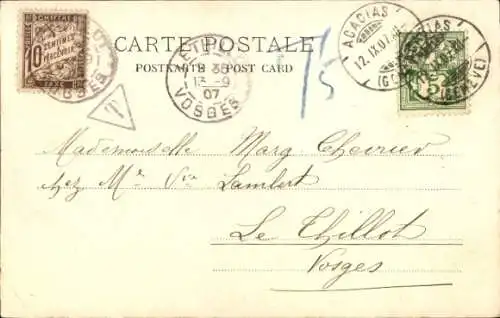 CHIFFRE
10
CENTIMES
À PERCEVOIR
CARTE POSTALE
POSTKARTE POST CARD
13 -9
07
VOSGES
T
15
ACACIAS
12.IX.07
(GENÈVE)
5
Mademoiselle Marg Chevrier
chez Mr Vve Lambert
Le Thillot
Vosges